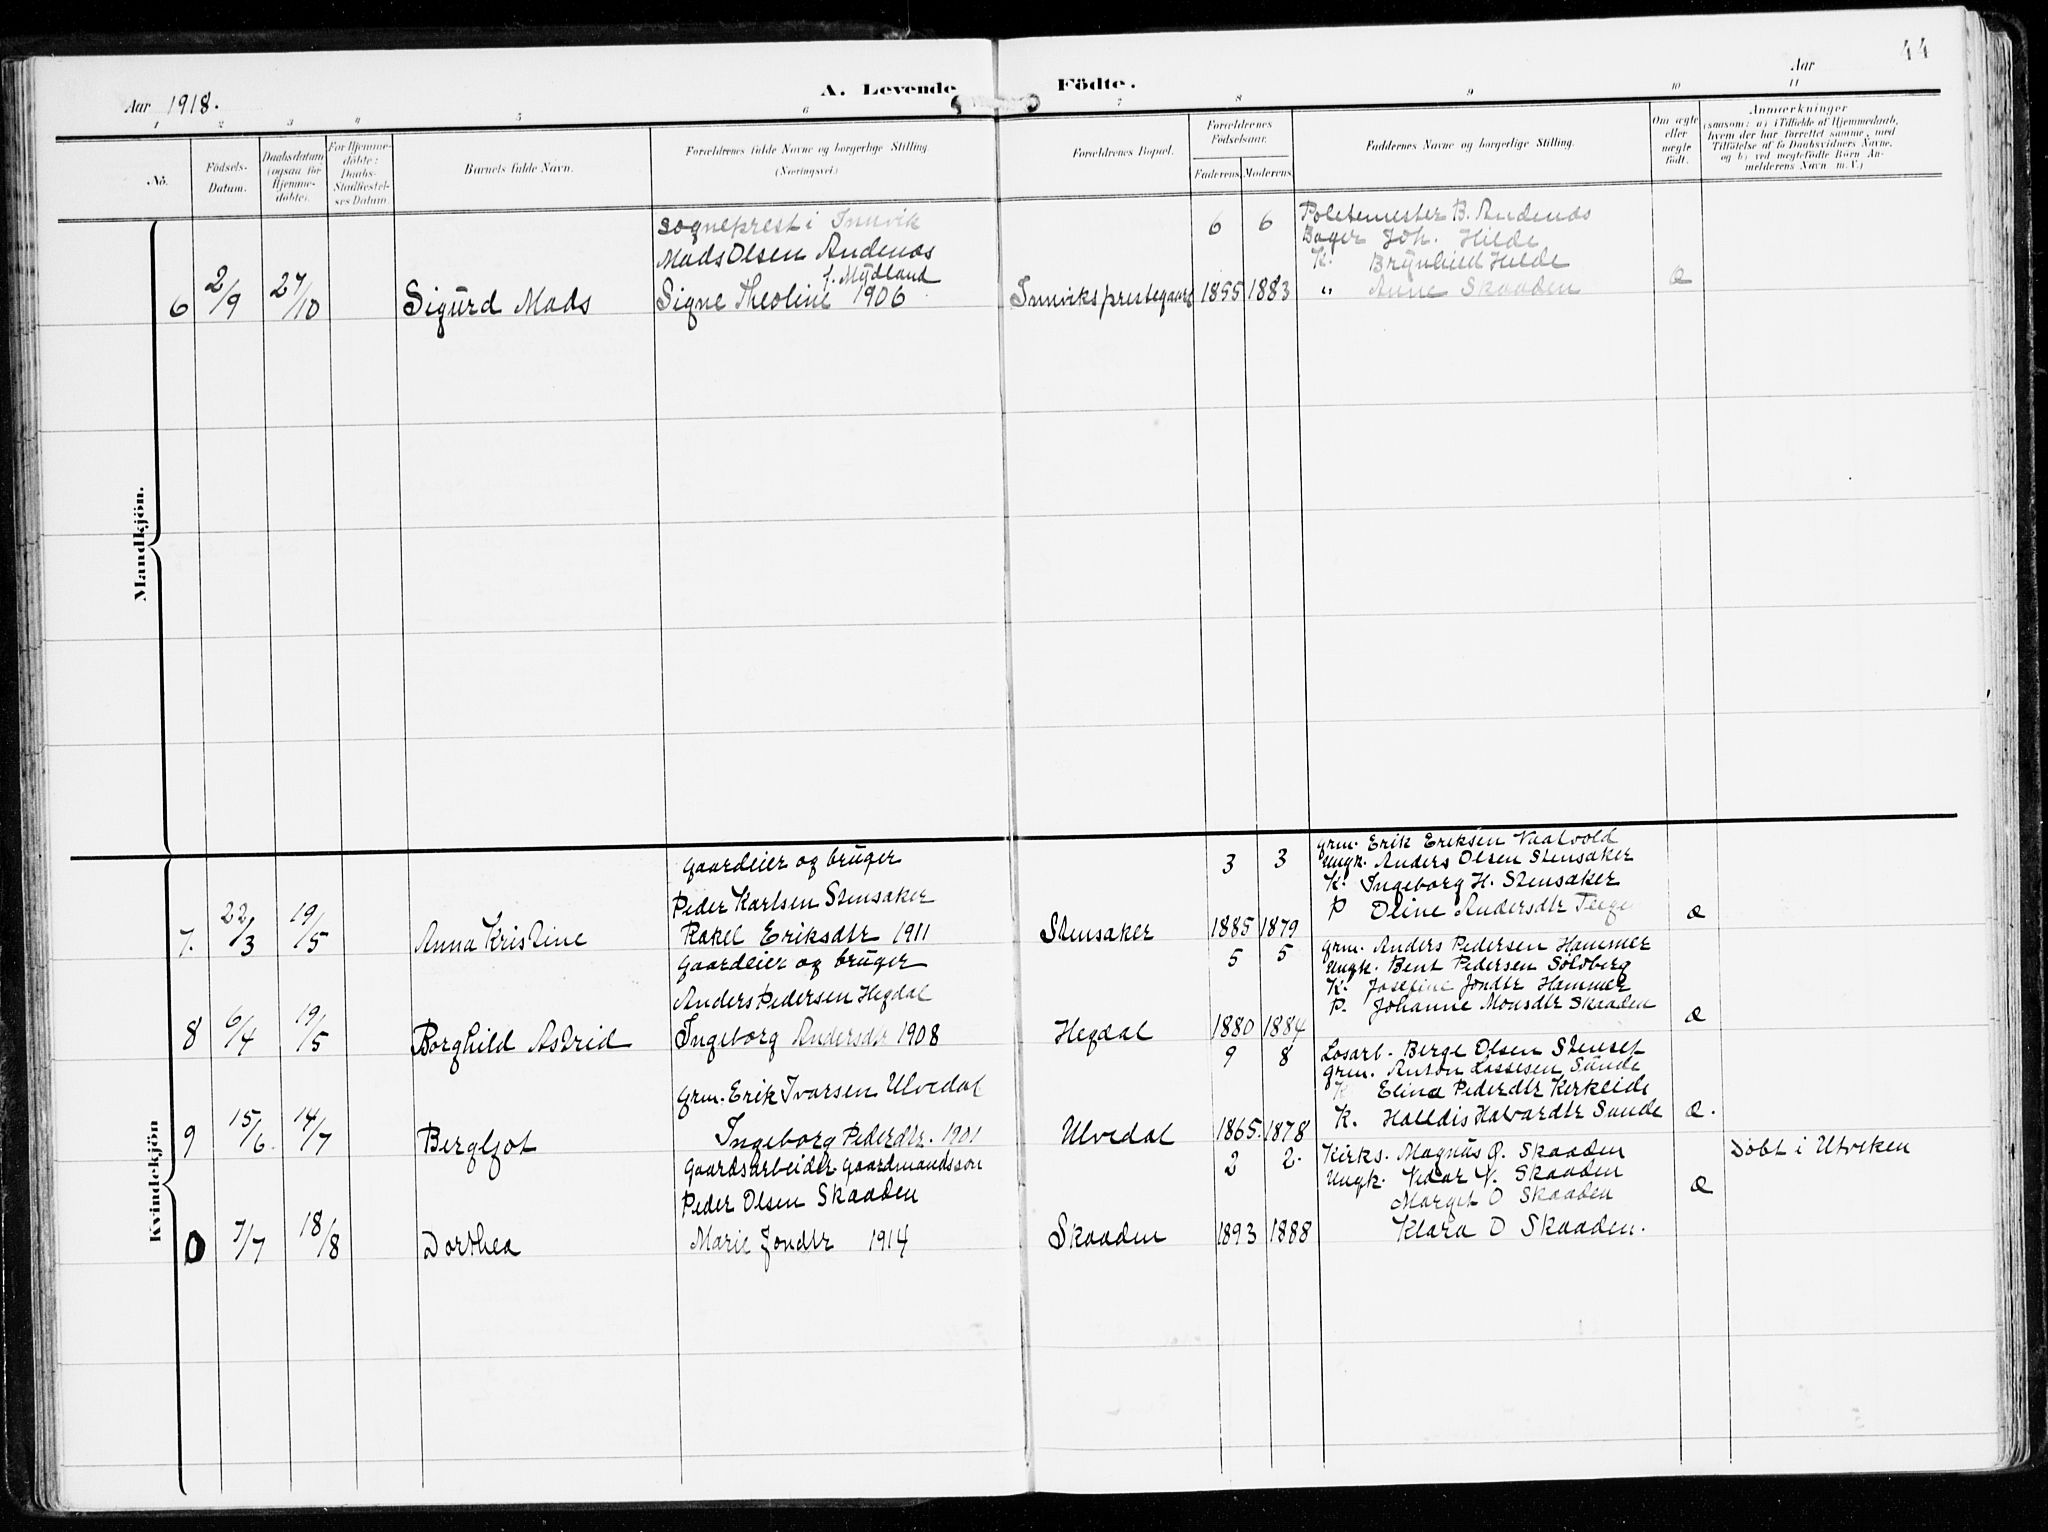 44
Aar 1918.
A. Levende Födte.
Aar
1 2 3 4 5 6 7 8 9 10 11
No.
Födsels-
Datum.
Daabsdatum
(ogsaa for
Hjemme-
döbte).
For Hjemme-
döbte:
Daabs-
Stadfæstel-
ses Datum.
Barnets fulde Navn.
Forældrenes fulde Navne og borgerlige Stilling.
(Næringsvei.)
Forældrenes Bopæl.
Forældrenes
Födselsaar.
Faderens Moderens
Faddernes Navne og borgerlige Stilling.
Om ægte
eller
uægte
födt.
Anmærkninger
(saasom: a) i Tilfælde af Hjemmedaab,
hvem der har forrettet samme, med
Tilföielse af to Daabsvidners Navne,
og b) ved uægtefödte Börn An-
melderens Navn m. V.)
Mandkjön.
sogneprest i Innvik
Mads Olsen Andenæs
f. Mydland
6 2/9 27/10 Sigurd Mads Signe Theoline 1906 Innviksprestegaard
6 6
1855 1883
Politimester B. Andenæs
Bager Joh. Hilde
K. Brynhild Hilde
" Anne Skaaden æ
Kvindekjön
gaardeier og bruger
Peder Karlsen Stensaker
7. 22/3 19/5 Anna Kristine Rakel Eriksdtr 1911 Stensaker
3 3
1885 1879
grm. Erik Eriksen Vaatvold
Ungk. Anders Olsen Stensaker
K. Ingeborg H. Stensaker
P Oline Andersdtr æ
gaardeier og bruger
Anders Pedersen Hegdal
8 6/4 19/5 Borghild Astrid Ingeborg Andersdtr 1908 Hegdal
5 5
1880 1884
grm. Anders Pedersen Hammer
Ungk. Bent Pedersen Soldberg
K. Josefine Jondtr Hammer
P. Johanne Monsdtr Skaaden æ
grm. Erik Ivarsen Ulvedal
9 15/6 14/7 Bergljot Ingeborg Pederdtr. 1901 Ulvedal
9 8
1865. 1878
Losarb. Berge Olsen
grm. Anton Lassesen Sande
K Elina Pederdtr Kirkeide
K. Halldis Halvardtr Sande æ.
Gaardsarbeider gaardmandssøn
Peder Olsen Skaaden
0 7/7 18/8 Dorthea Marie Jondtr 1914 Skaaden
2 2.
1893 1888
Kirks. Magnus O. Skaaden
Ungk. Vidar V. Skaaden
Margit O Skaaden æ
Klara O Skaaden.
Døbt i Utviken